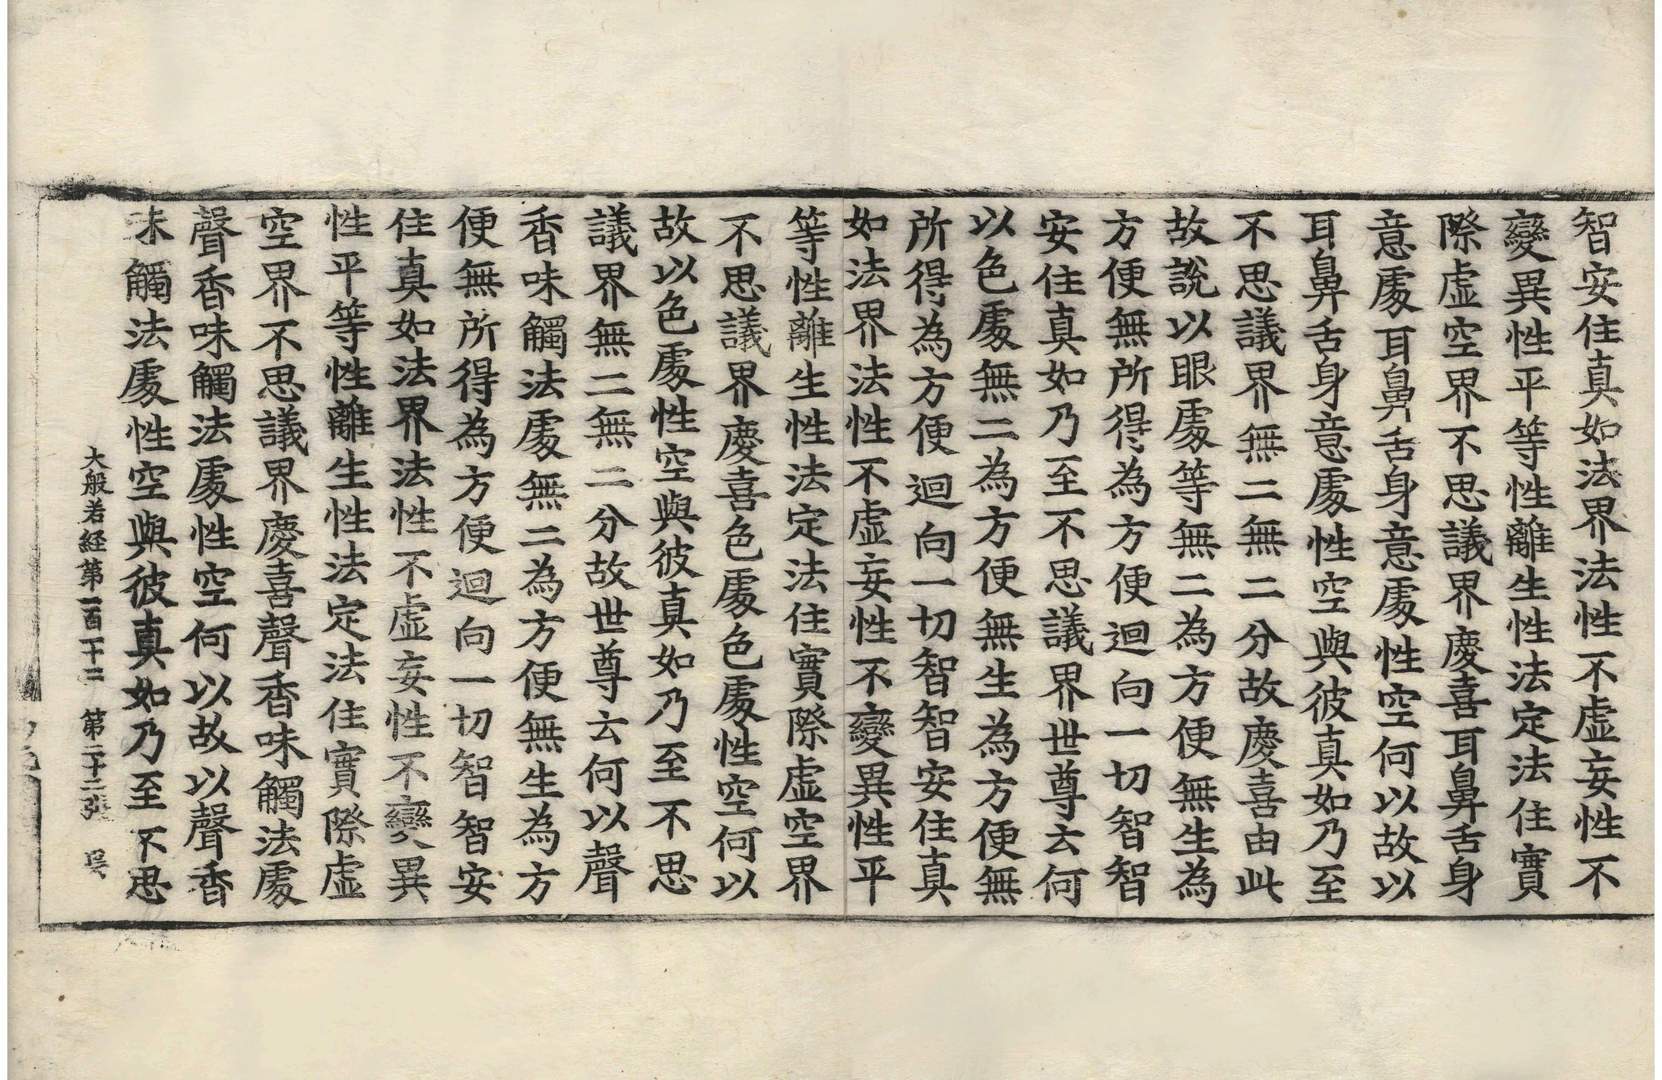 智安住真如法界法性不虛妄性不
變異性平等性離生性法定法住實
際虛空界不思議界慶喜耳鼻舌身
意處耳鼻舌身意處性空何以故以
耳鼻舌身意處性空與彼真如乃至
不思議界無二無二分故慶喜由此
故說以眼處等無二為方便無生為
方便無所得為方便迴向一切智智
安住真如乃至不思議界世尊云何
以色處無二為方便無生為方便無
所得為方便迴向一切智智安住真
如法界法性不虛妄性不變異性平
等性離生性法定法住實際虛空界
不思議界慶喜色處色處性空何以
故以色處性空與彼真如乃至不思
議界無二無二分故世尊云何以聲
香味觸法處無二為方便無生為方
便無所得為方便迴向一切智智安
住真如法界法性不虛妄性不變異
性平等性離生性法定法住實際虛
空界不思議界慶喜聲香味觸法處
聲香味觸法處性空何以故以聲香
味觸法處性空與彼真如乃至不思
大般若経第一百一十二 第二十二張 吳